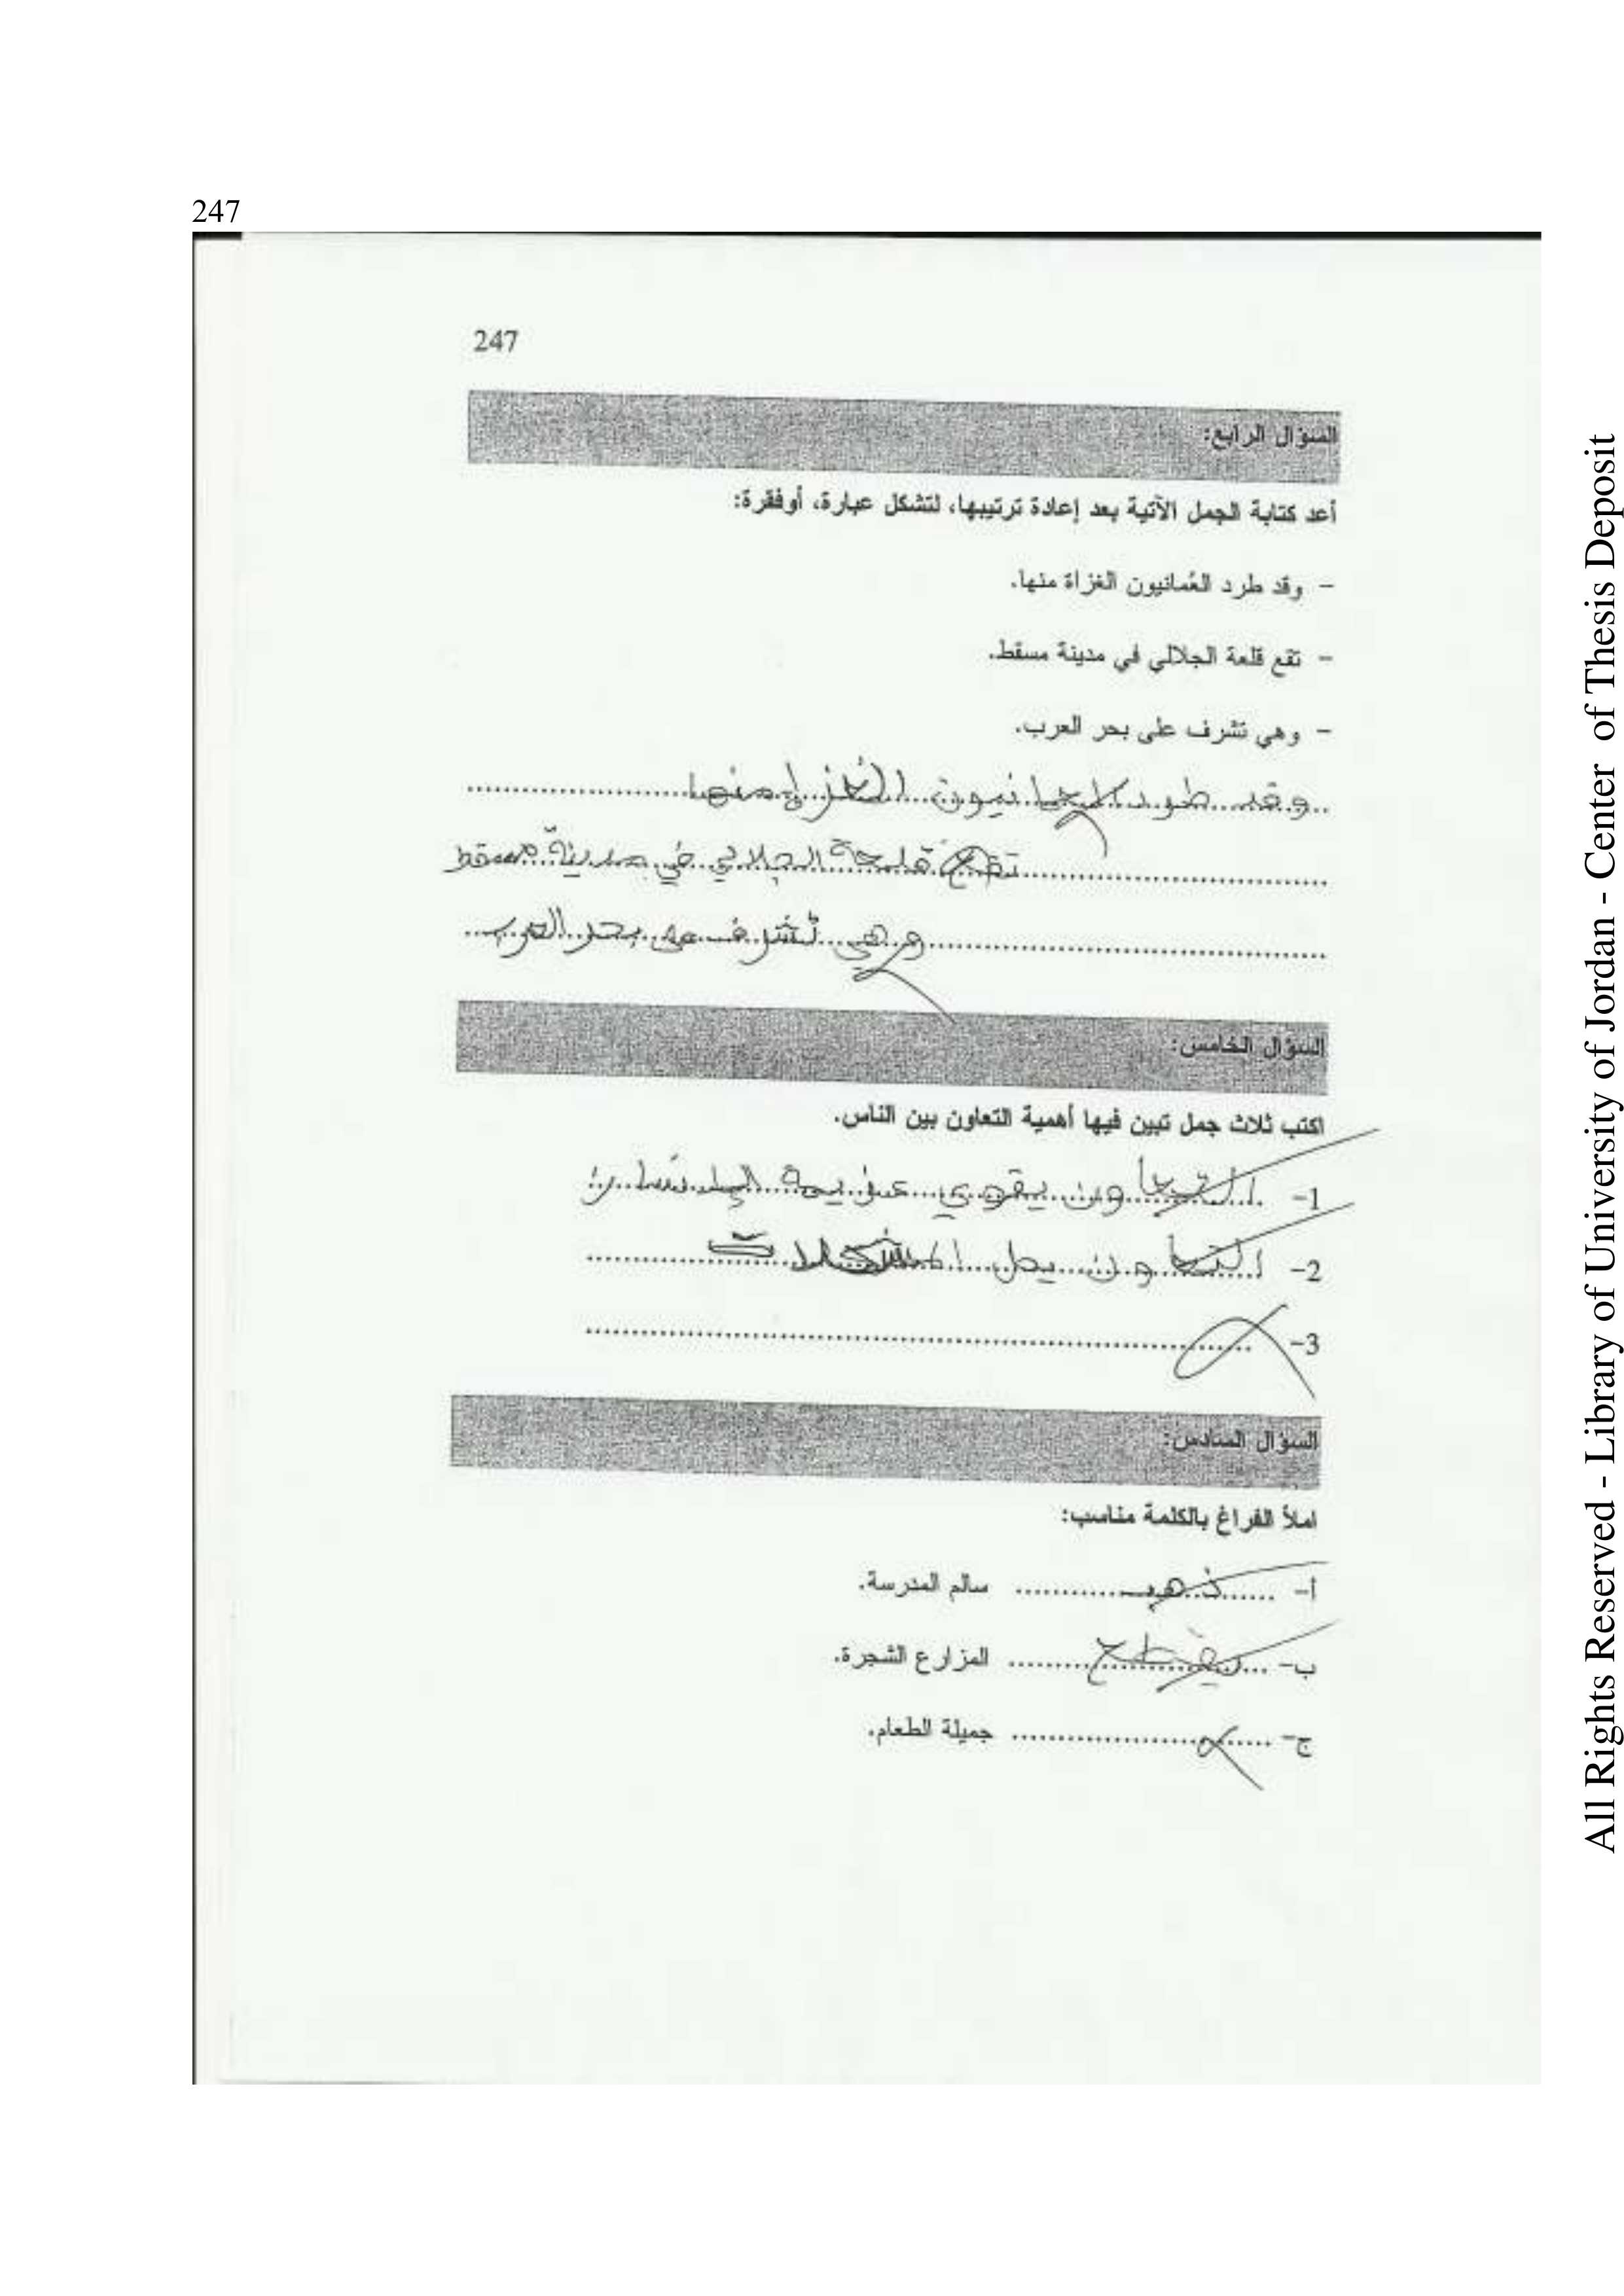 247
247
السؤال الرابع:
أعد كتابة الجمل الآتية بعد إعادة ترتيبها، لتشكل عبارة، أوفقرة:
- وقد طرد العُمانيون الغزاة منها.
- تقع قلعة الجلالي في مدينة مسقط.
- وهي تشرف على بحر العرب.
وقد طرد نيون منها
تقع قلعة الجلالي في مدينة مسقط
وهي تشرف على بحر العرب
السؤال الخامس:
اكتب ثلاث جمل تبين فيها أهمية التعاون بين الناس.
1- التعاون يقوي عزيمة الإنسان
2- التعاون يحل
3-
السؤال السادس:
املأ الفراغ بالكلمة مناسب:
أ- ذهب سالم المدرسة.
ب- يقطع المزارع الشجرة.
ج- جميلة الطعام.
All Rights Reserved - Library of University of Jordan - Center of Thesis Deposit